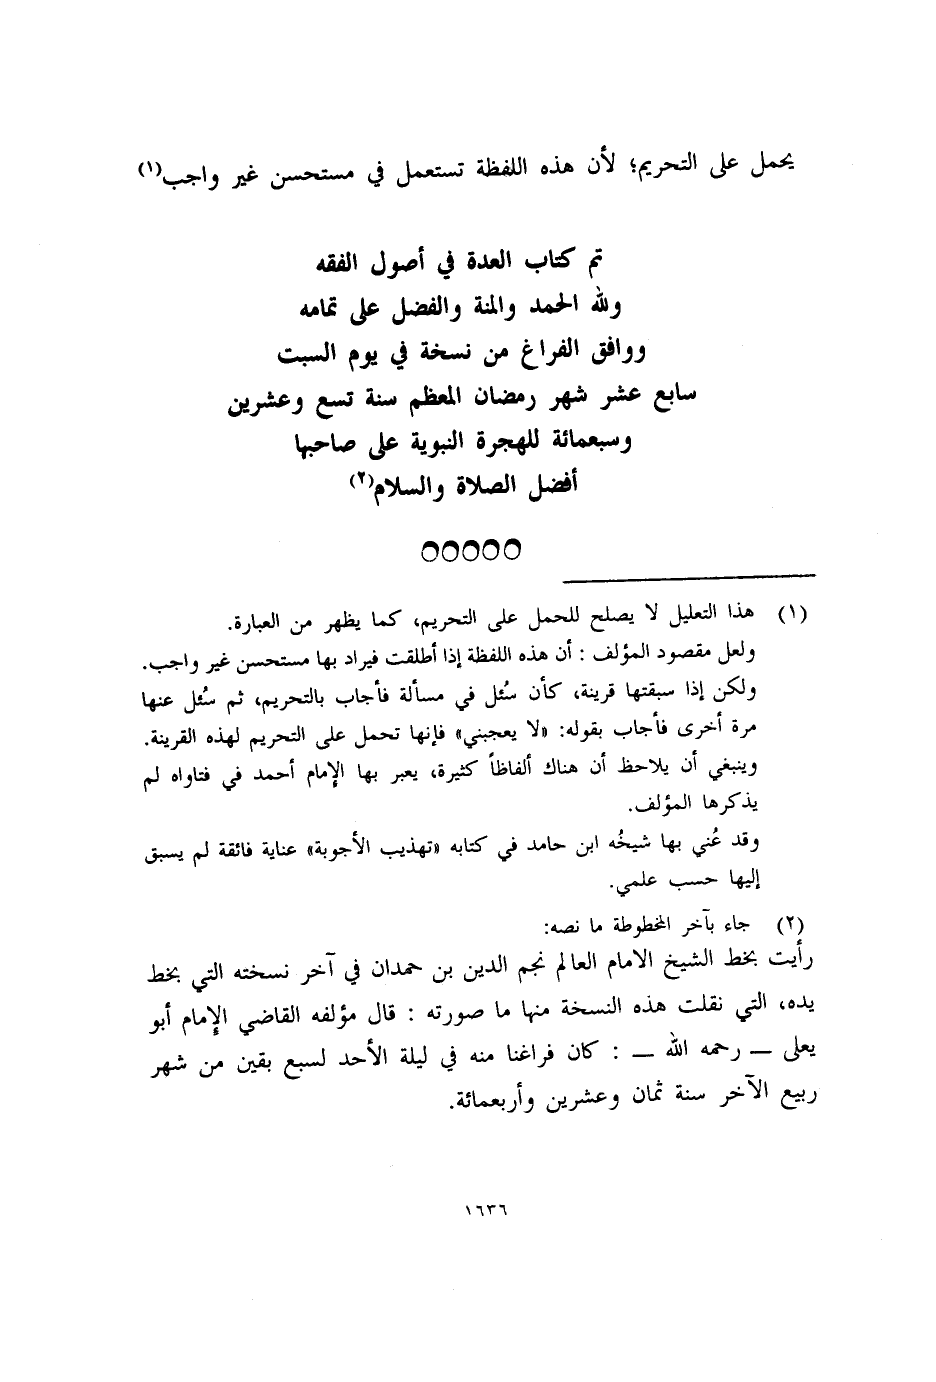 يحمل على التحريم؛ لأن هذه اللفظة تستعمل في مستحسن غير واجب(١)
تم كتاب العدة في أصول الفقه
ولله الحمد والمنة والفضل على تمامه
ووافق الفراغ من نسخة في يوم السبت
سابع عشر شهر رمضان المعظم سنة تسع وعشرين
وسبعمائة للهجرة النبوية على صاحبها
أفضل الصلاة والسلام(٢)
(١) هذا التعليل لا يصلح للحمل على التحريم، كما يظهر من العبارة.
ولعل مقصود المؤلف : أن هذه اللفظة إذا أطلقت فيراد بها مستحسن غير واجب.
ولكن إذا سبقتها قرينة، كأن سُئل في مسألة فأجاب بالتحريم، ثم سُئل عنها
مرة أخرى فأجاب بقوله: «لا يعجبني» فإنها تحمل على التحريم لهذه القرينة.
وينبغي أن يلاحظ أن هناك ألفاظاً كثيرة، يعبر بها الإمام أحمد في فتاواه لم
يذكرها المؤلف.
وقد عُني بها شيخُه ابن حامد في كتابه «تهذيب الأجوبة» عناية فائقة لم يسبق
إليها حسب علمي.
(٢) جاء بآخر المخطوطة ما نصه:
رأيت بخط الشيخ الامام العالم نجم الدين بن حمدان في آخر نسخته التي بخط
يده، التي نقلت هذه النسخة منها ما صورته : قال مؤلفه القاضي الإمام أبو
يعلى — رحمه الله — : كان فراغنا منه في ليلة الأحد لسبع بقين من شهر
ربيع الآخر سنة ثمان وعشرين وأربعمائة.
١٦٣٦